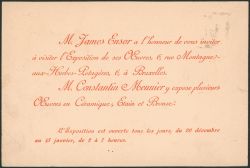 M. James Ensor a l'honneur de vous inviter
à visiter l'Exposition de ses Œuvres, 6, rue Montagne-
aux-Herbes-Potagères, 6, à Bruxelles.
M. Constantin Meunier y expose plusieurs
Œuvres en Céramique, Étain et Bronze.
L'Exposition est ouverte tous les jours, du 20 décembre
au 15 janvier, de 2 à 5 heures.